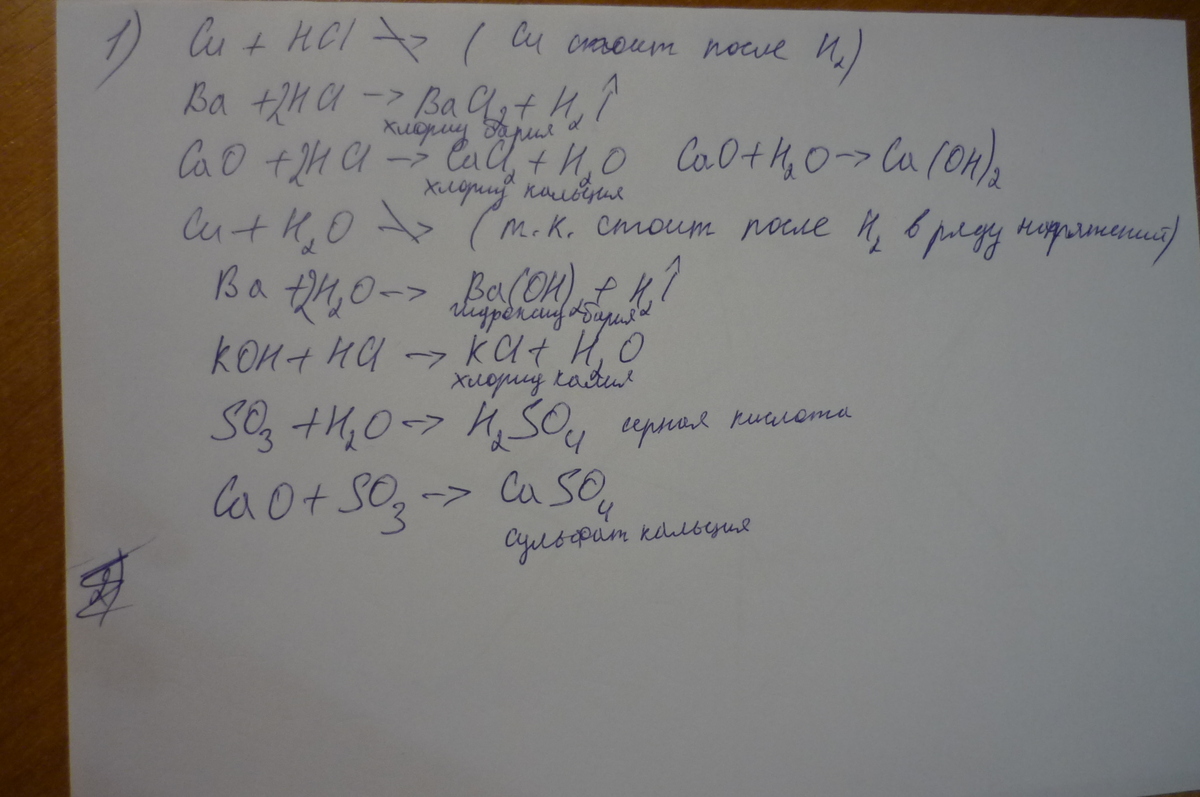 1) Cu + HCl ↛ ( Cu стоит после H₂)
Ba + 2HCl → BaCl₂ + H₂↑
хлорид бария
CaO + 2HCl → CaCl₂ + H₂O CaO + H₂O → Ca(OH)₂
хлорид кальция
Cu + H₂O ↛ (т.к. стоит после H₂ в ряду напряжений)
Ba + 2H₂O → Ba(OH)₂ + H₂↑
гидроксид бария
KOH + HCl → KCl + H₂O
хлорид калия
SO₃ + H₂O → H₂SO₄ серная кислота
CaO + SO₃ → CaSO₄
сульфат кальция
2)